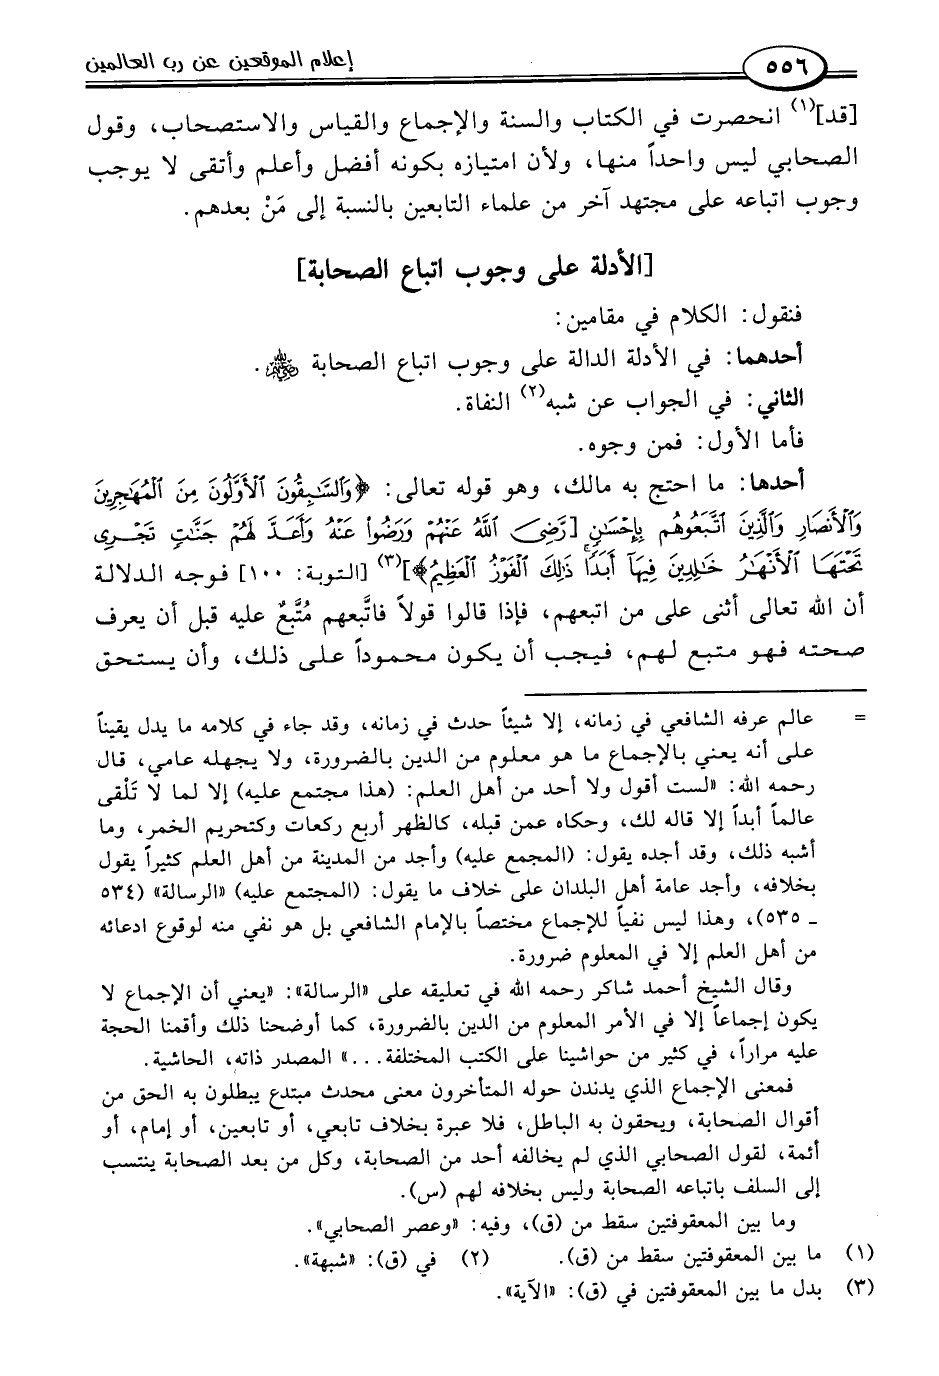 ٥٥٦ إعلام الموقعين عن رب العالمين
[قد](١) انحصرت في الكتاب والسنة والإجماع والقياس والاستصحاب، وقول
الصحابي ليس واحداً منها، ولأن امتيازه بكونه أفضل وأعلم وأتقى لا يوجب
وجوب اتباعه على مجتهد آخر من علماء التابعين بالنسبة إلى مَنْ بعدهم.
[الأدلة على وجوب اتباع الصحابة]
فنقول: الكلام في مقامين:
أحدهما: في الأدلة الدالة على وجوب اتباع الصحابة رضي الله عنهم.
الثاني: في الجواب عن شبه(٢) النفاة.
فأما الأول: فمن وجوه.
أحدها: ما احتج به مالك، وهو قوله تعالى: ﴿وَالسَّابِقُونَ الْأَوَّلُونَ مِنَ الْمُهَاجِرِينَ
وَالْأَنصَارِ وَالَّذِينَ اتَّبَعُوهُم بِإِحْسَانٍ [رَّضِيَ اللَّهُ عَنْهُمْ وَرَضُوا عَنْهُ وَأَعَدَّ لَهُمْ جَنَّاتٍ تَجْرِي
تَحْتَهَا الْأَنْهَارُ خَالِدِينَ فِيهَا أَبَدًا ذَٰلِكَ الْفَوْزُ الْعَظِيمُ﴾](٣) [التوبة: ١٠٠] فوجه الدلالة
أن الله تعالى أثنى على من اتبعهم، فإذا قالوا قولاً فاتَّبعهم مُتَّبعٌ عليه قبل أن يعرف
صحته فهو متبع لهم، فيجب أن يكون محموداً على ذلك، وأن يستحق
= عالم عرفه الشافعي في زمانه، إلا شيئاً حدث في زمانه، وقد جاء في كلامه ما يدل يقيناً
على أنه يعني بالإجماع ما هو معلوم من الدين بالضرورة، ولا يجهله عامي، قال
رحمه الله: «لست أقول ولا أحد من أهل العلم: (هذا مجتمع عليه) إلا لما لا تَلْقى
عالماً أبداً إلا قاله لك، وحكاه عمن قبله، كالظهر أربع ركعات وكتحريم الخمر، وما
أشبه ذلك، وقد أجده يقول: (المجمع عليه) وأجد من المدينة من أهل العلم كثيراً يقول
بخلافه، وأجد عامة أهل البلدان على خلاف ما يقول: (المجتمع عليه) «الرسالة» (٥٣٤
ـ ٥٣٥)، وهذا ليس نفياً للإجماع مختصاً بالإمام الشافعي بل هو نفي منه لوقوع ادعائه
من أهل العلم إلا في المعلوم ضرورة.
وقال الشيخ أحمد شاكر رحمه الله في تعليقه على «الرسالة»: «يعني أن الإجماع لا
يكون إجماعاً إلا في الأمر المعلوم من الدين بالضرورة، كما أوضحنا ذلك وأقمنا الحجة
عليه مراراً، في كثير من حواشينا على الكتب المختلفة...» المصدر ذاته، الحاشية.
فمعنى الإجماع الذي يدندن حوله المتأخرون معنى محدث مبتدع يبطلون به الحق من
أقوال الصحابة، ويحقون به الباطل، فلا عبرة بخلاف تابعي، أو تابعين، أو إمام، أو
أئمة، لقول الصحابي الذي لم يخالفه أحد من الصحابة، وكل من بعد الصحابة ينتسب
إلى السلف باتباعه الصحابة وليس بخلافه لهم (س).
وما بين المعقوفتين سقط من (ق)، وفيه: «وعصر الصحابي».
(١) ما بين المعقوفتين سقط من (ق). (٢) في (ق): «شبهة».
(٣) بدل ما بين المعقوفتين في (ق): «الآية».